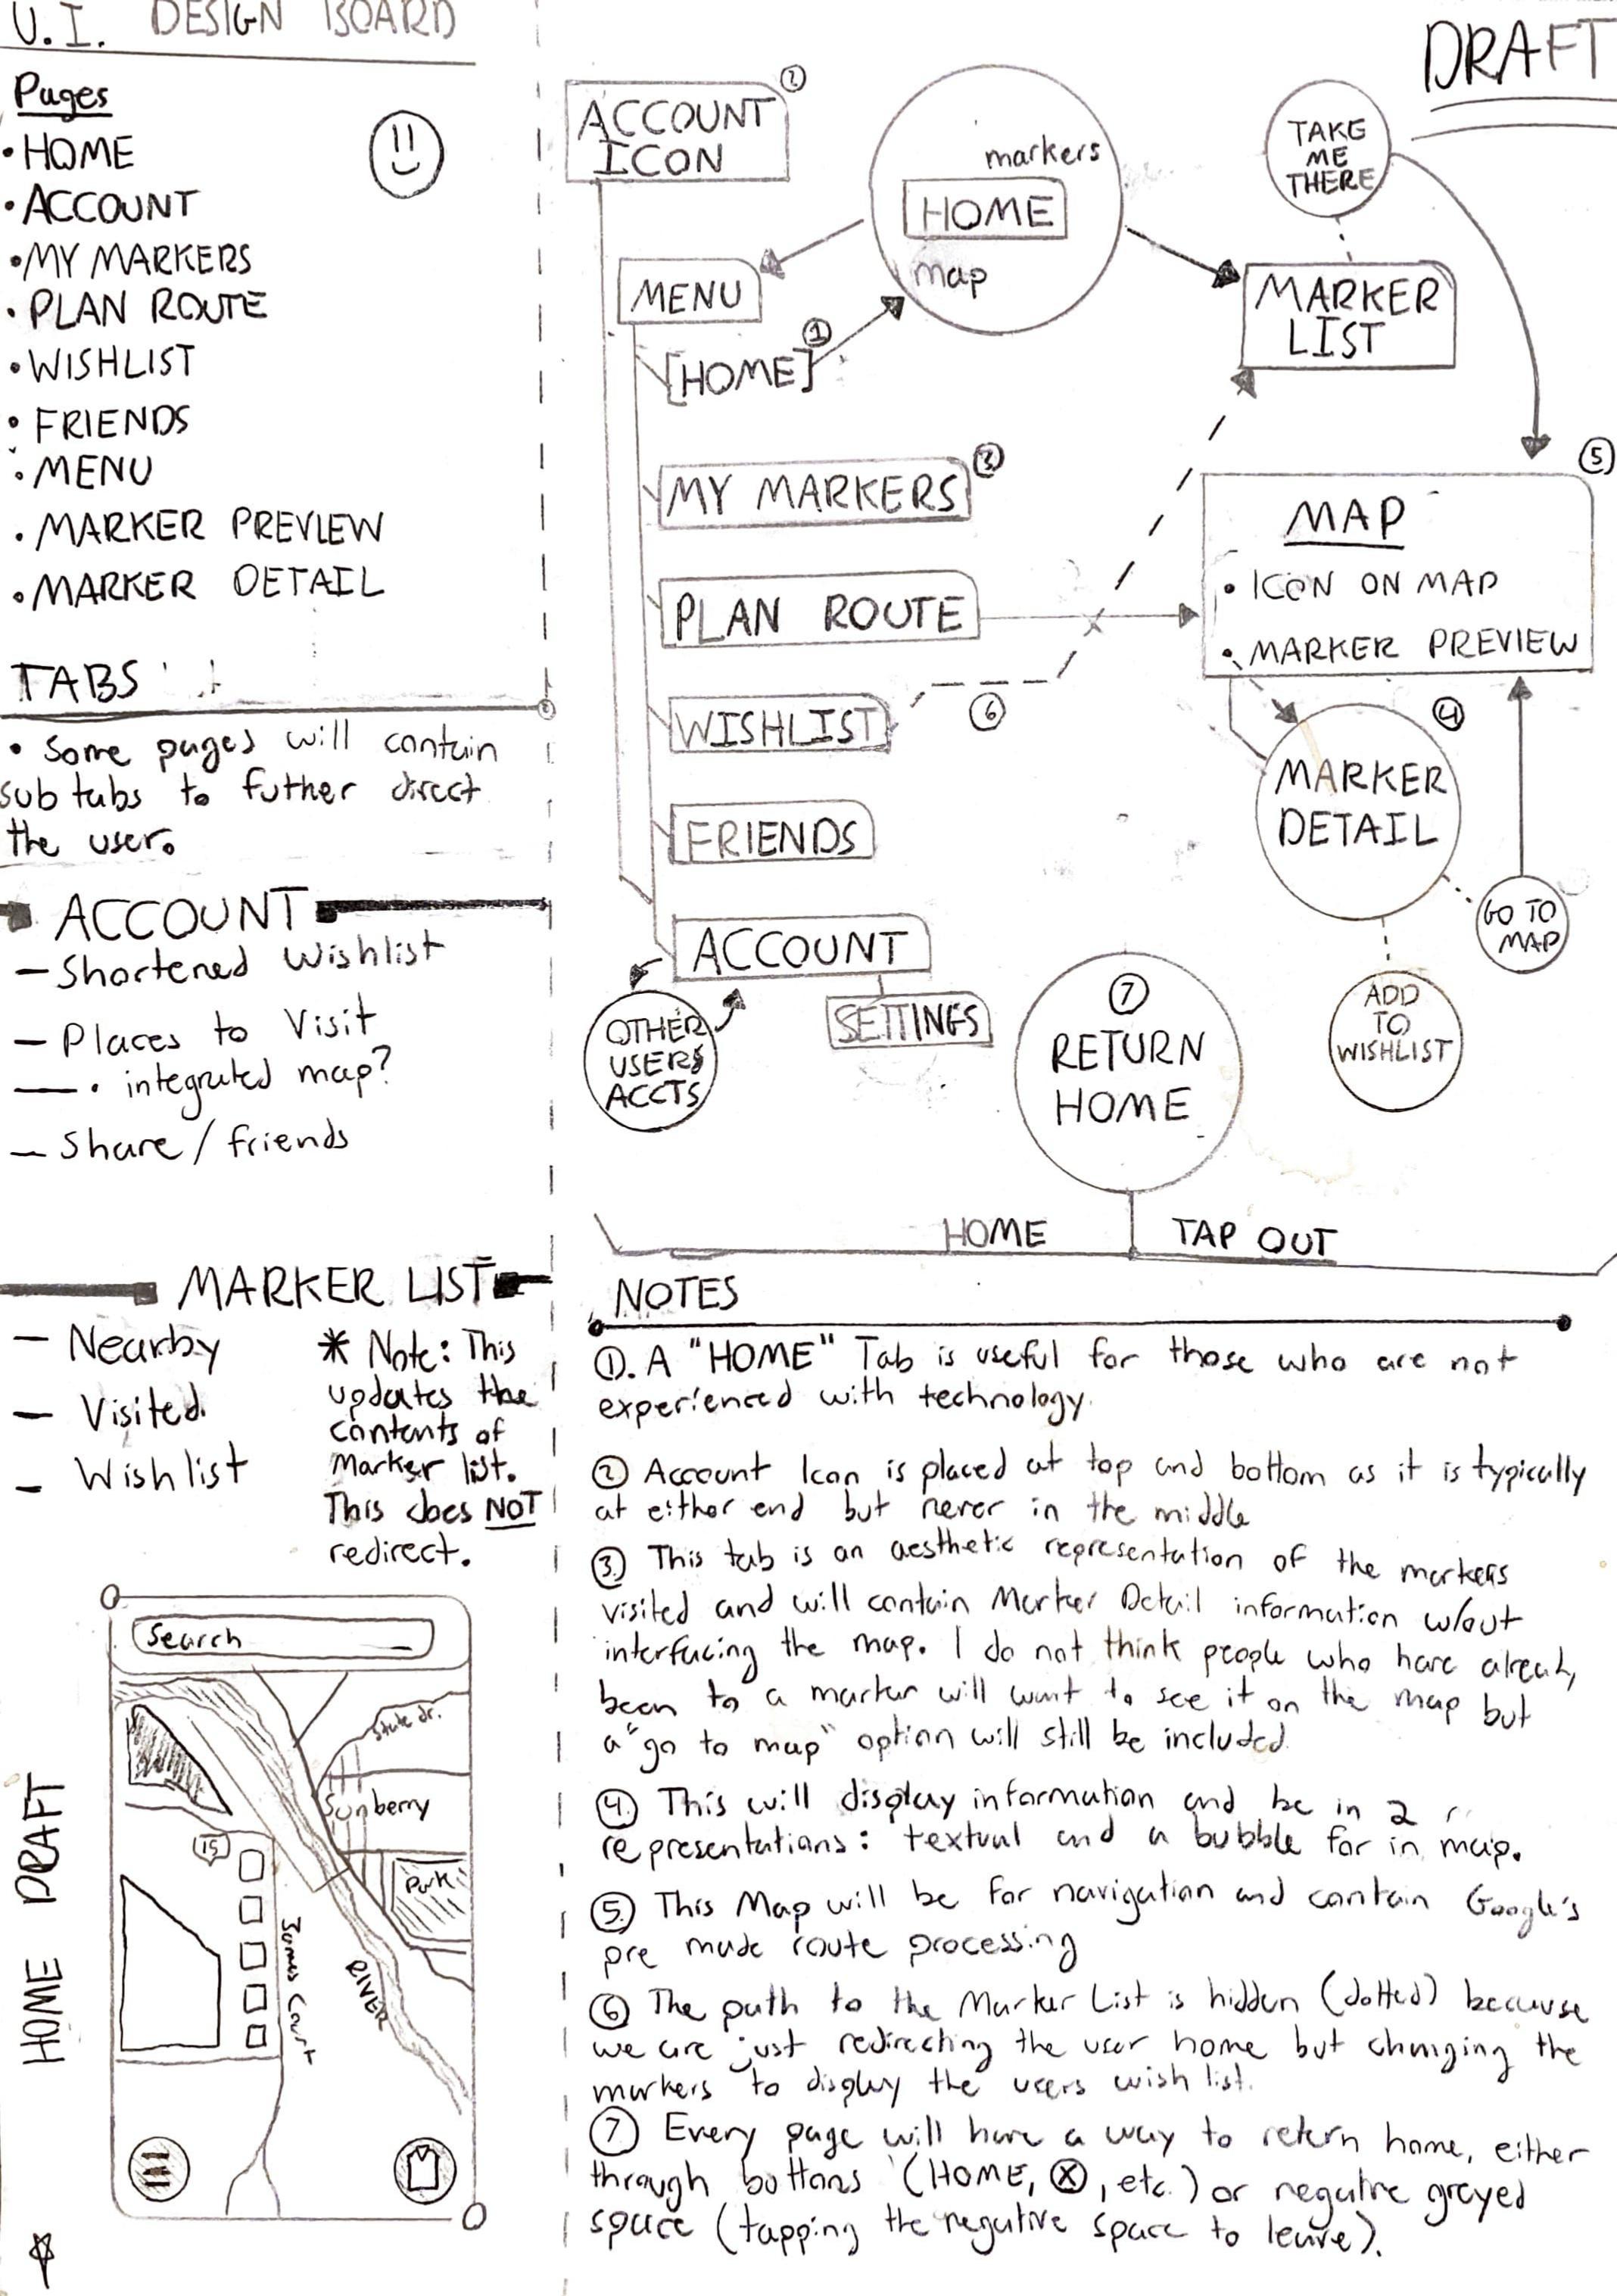 U.I. DESIGN BOARD
DRAFT
Pages
• HOME
• ACCOUNT
• MY MARKERS
• PLAN ROUTE
• WISHLIST
• FRIENDS
• MENU
• MARKER PREVIEW
• MARKER DETAIL
TABS
• Some pages will contain
sub tabs to futher direct
the user.
ACCOUNT
— Shortened Wishlist
— Places to Visit
— • integrated map?
— Share / friends
MARKER LIST
— Nearby
— Visited
— Wishlist
* Note: This
updates the
contents of
Marker list.
This does NOT
redirect.
HOME DRAFT
Search
State dr.
Sunberry
Park
15
James Court
RIVER
ACCOUNT
ICON
2
markers
HOME
map
TAKE
ME
THERE
MENU
1
[HOME]
MARKER
LIST
MY MARKERS
3
PLAN ROUTE
WISHLIST
6
FRIENDS
ACCOUNT
SETTINGS
OTHER
USERS
ACCTS
5
MAP
• ICON ON MAP
• MARKER PREVIEW
4
MARKER
DETAIL
GO TO
MAP
ADD
TO
WISHLIST
7
RETURN
HOME
HOME TAP OUT
NOTES
1. A "HOME" Tab is useful for those who are not
experienced with technology.
2 Account Icon is placed at top and bottom as it is typically
at either end but never in the middle
3. This tab is an aesthetic representation of the markers
visited and will contain Marker Detail information w/out
interfacing the map. I do not think people who have already
been to a marker will want to see it on the map but
a "go to map" option will still be included.
4. This will display information and be in 2
representations: textual and a bubble for in map.
5. This Map will be for navigation and contain Google's
pre made route processing
6 The path to the Marker List is hidden (dotted) because
we are just redirecting the user home but changing the
markers to display the users wish list.
7 Every page will have a way to return home, either
through buttons (HOME, ⓧ, etc.) or negative greyed
space (tapping the negative space to leave).